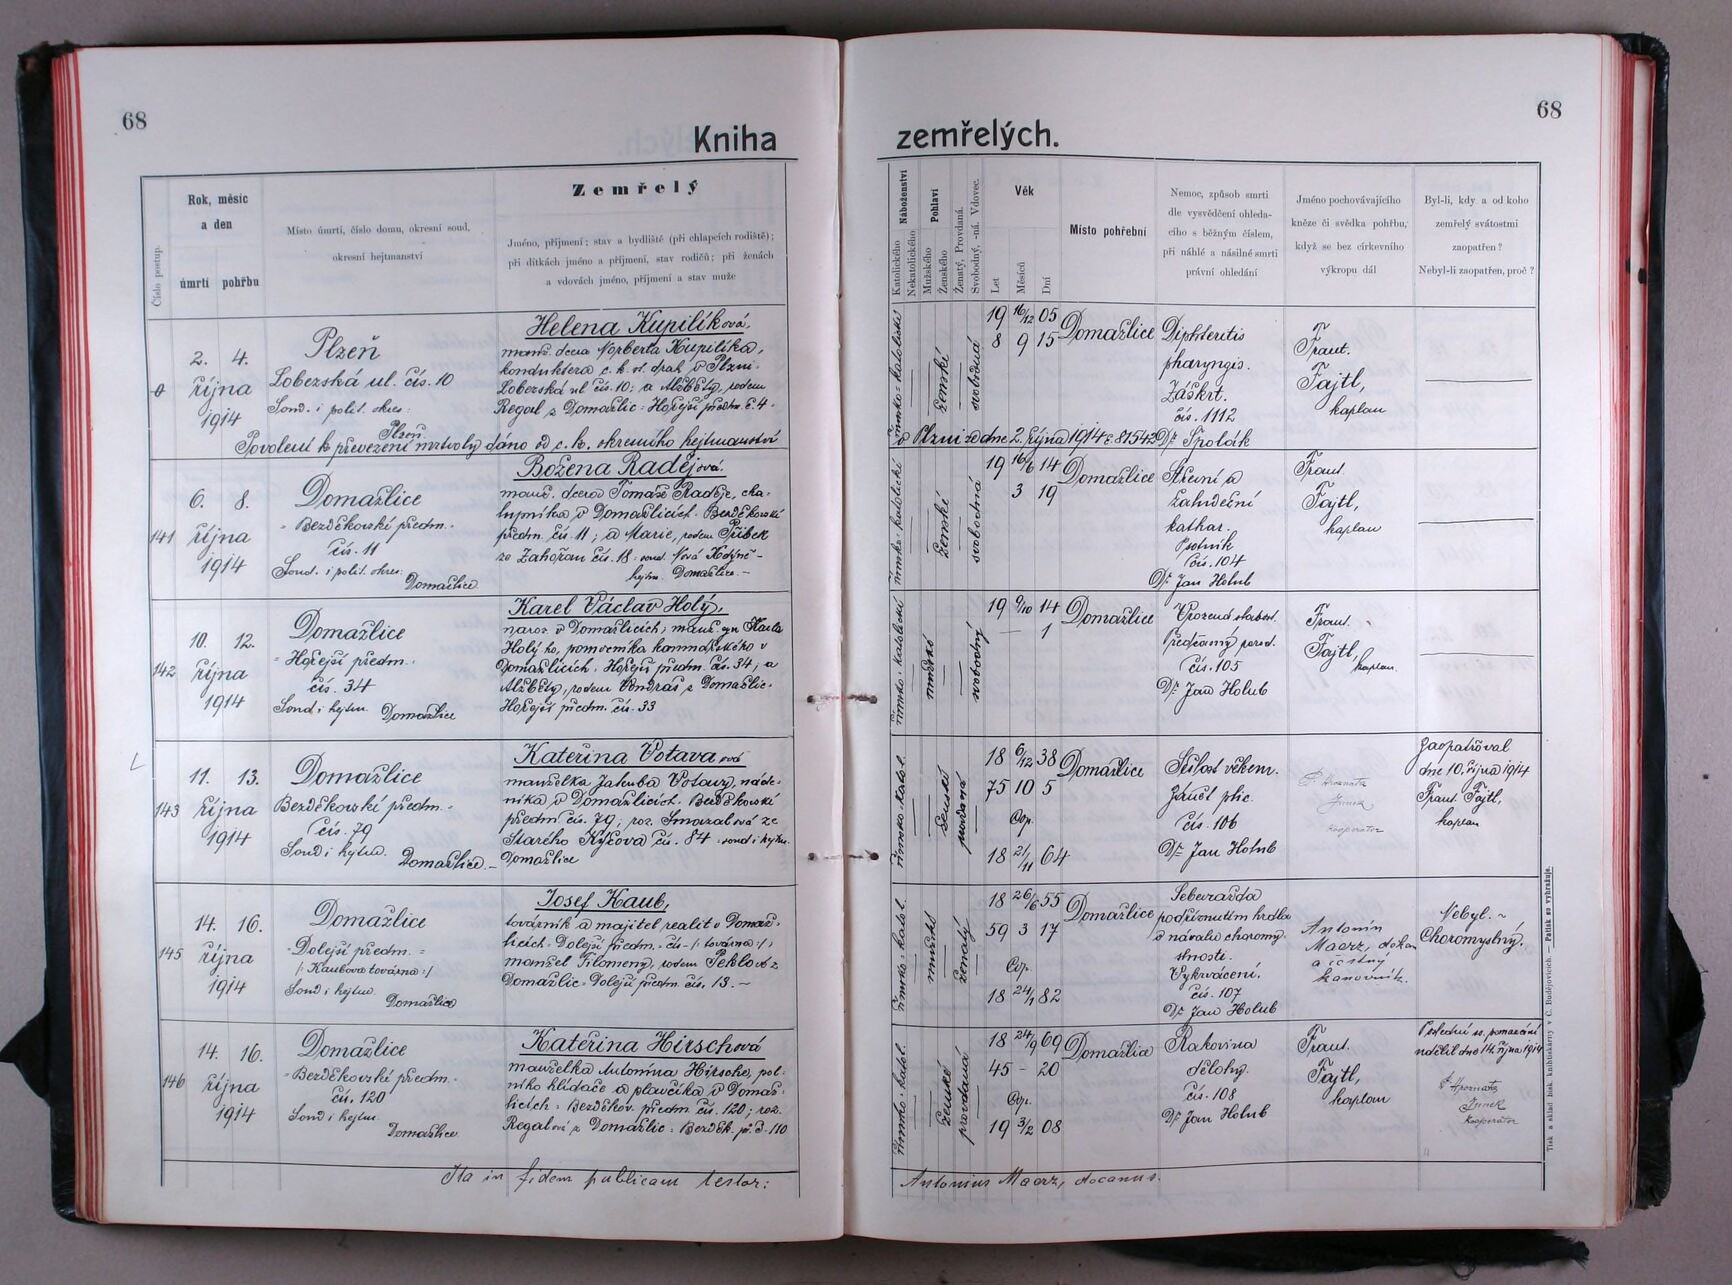 68
Kniha
Zemřelý
Rok, měsíc
a den
úmrtí pohřbu
Číslo postup.
Místo úmrtí, číslo domu, okresní soud,
okresní hejtmanství
Jméno, příjmení; stav a bydliště (při chlapcích rodiště);
při dítkách jméno a příjmení, stav rodičů; při ženách
a vdovách jméno, příjmení a stav muže
2. 4.
října
1914
Plzeň
Lobezská ul. čís. 10
Soud. i polit. okres:
Plzeň
Helena Kupilíková,
manž. dcera Norberta Kupilíka,
konduktéra c. k. st. drah v Plzni
Lobezská ul čís. 10; a Alžběty, rodem
Regal z Domažlic: Hořejší předm. č. 4.
Povolení k převezení mrtvoly dáno od c. k. okresního hejtmanství
141
6. 8.
října
1914
Domažlice
Bezděkovské předm.
čís. 11
Soud. i polit. okres:
Domažlice
Božena Radějová.
manž. dcera Tomáše Raděje, cha-
lupníka v Domažlicích. Bezděkovské
předm. čís. 11; a Marie, rodem Příbek
ze Zahořan čís. 18: soud. Nová Kdýně-
hejtm. Domažlice.-
142
10. 12.
října
1914
Domažlice
Hořejší předm.
čís. 34
Soud i hejtm. Domažlice
Karel Václav Holý,
naroz. v Domažlicích; manž. syn Karla
Holý ho, pomocníka kamnářského v
Domažlicích. Hořejší předm. čís. 34; a
Alžběty, rodem Vondráš z Domažlic-
Hořejší předm. čís. 33
143
11. 13.
října
1914
Domažlice
Bezděkovské předm.
čís. 79
Soud i hejtm. Domažlice.-
Kateřina Votavaová
manželka Jakuba Votavy, náde-
níka v Domažlicích. Bezděkovské
předm čís. 79; roz. Smazalová ze
Starého Klíčova čís. 84: soud i hejtm.
Domažlice
145
14. 16.
října
1914
Domažlice
Dolejší předm.
/: Kaubova továrna :/
Soud i hejtm.
Domažlice
Josef Kaub,
továrník a majitel realit v Domaž-
licích- Dolejší předm.- čís- /: továrna :/;
manžel Filomeny, rodem Peklo z
Domažlic- Dolejší předm čís. 13.-
146
14. 16.
října
1914
Domažlice
Bezděkovské předm.
čís. 120
Soud i hejtm.
Domažlice
Kateřina Hirschová
manželka Antonína Hirsche, pol-
ního hlídače a plavčíka v Domaž-
licích = Bezděkov. předm čís. 120; roz.
Regalová z Domažlic: Bezděk. př. č. 110
Ita in fidem publicam testor:
68
zemřelých.
Náboženství
Katolického
Nekatolického
Pohlaví
Mužského
Ženského
Ženatý, Provdaná.
Svobodný, -ná. Vdovec.
Věk
Let
Měsíců
Dní
Místo pohřební
Nemoc, způsob smrti
dle vysvědčení ohleda-
cího s běžným číslem,
při náhlé a násilné smrti
právní ohledání
Jméno pochovávajícího
kněze či svědka pohřbu,
když se bez církevního
výkropu dál
Byl-li, kdy a od koho
zemřelý svátostmi
zaopatřen?
Nebyl-li zaopatřen, proč?
římsko-katolické
ženské
svobodná
19 16/12 05
8 9 15
Domažlice
Diphteritis
pharyngis.
Záškrt.
čís. 1112
Dr. Špolák
Frant.
Fajtl,
kaplan
v Plzni ze dne 2. října 1914 č. 81542
římsko-katolické
ženské
svobodná
19 16/6 14
3 19
Domažlice
Střevní a
žaludeční
kathar.
Psotník
čís. 104
Dr. Jan Holub
Frant
Fajtl,
kaplan
římsko-katolické
mužské
svobodný
19 9/10 14
— 1
Domažlice
Vrozená slabost.
Předčasný porod.
čís. 105
Dr. Jan Holub
Frant.
Fajtl,
kaplan.
římsko-katol.
ženské
provdaná
18 6/12 38
75 10 5
Cop.
18 21/11 64
Domažlice
Sešlost věkem.
Zánět plic.
čís. 106
Dr. Jan Holub
P. Hroznata
kooperátor
Zaopatřoval
dne 10. října 1914
Frant. Fajtl,
kaplan
římsko-katol.
mužské
ženatý
18 26/6 55
59 3 17
Cop.
18 24/1 82
Domažlice
Sebevražda
podříznutím hrdla
v návalu choromy-
slnosti.
Vykrvácení.
čís. 107
Dr. Jan Holub
Antonín
Maerz, děkan
a čestný
kanovník.
Nebyl.-
Choromyslný.
římsko-katol.
ženské
provdaná
18 24/9 69
45 - 20
Cop.
19 3/2 08
Domažlice
Rakovina
dělohy.
čís. 108
Dr. Jan Holub
Frant.
Fajtl,
kaplan
Poslední sv. pomazání
udělil dne 14. října 1914
P. Hroznata
kooperátor
Antonius Maerz, decanus.
Tisk a sklad tisk. knihtiskárny v Č. Budějovicích. — Patisk se vyhražuje.